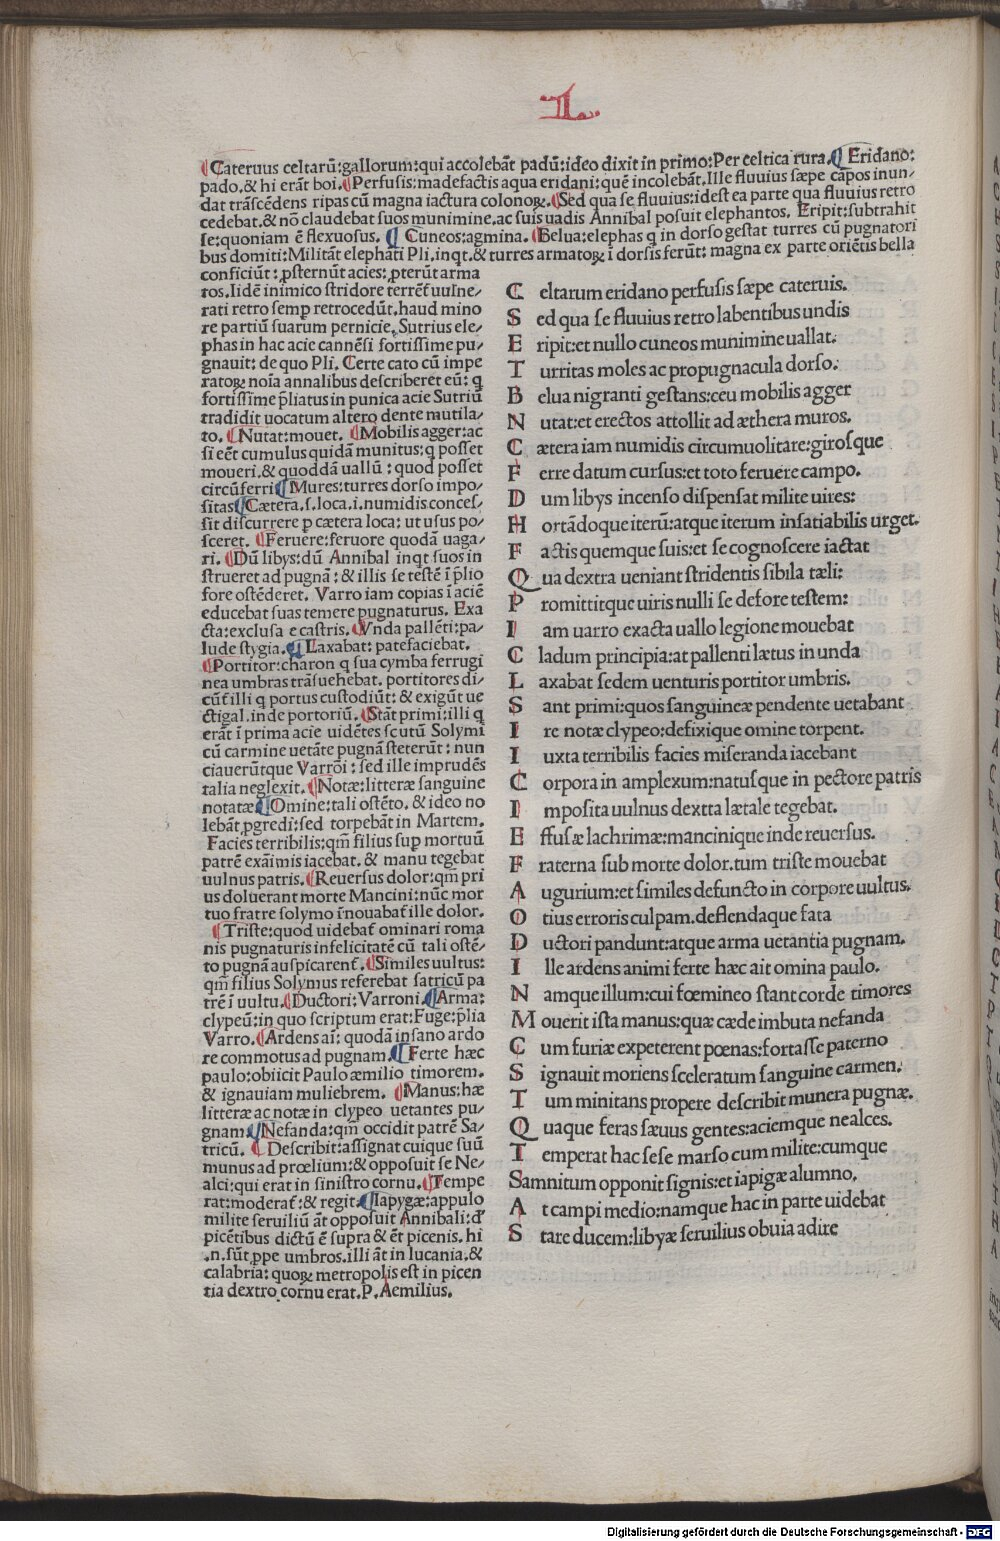 L
¶Cateruus celtarū:gallorum:qui accolebāt padū:ideo dixit in primo:Per celtica rura.¶Eridano:
pado.& hi erāt boi.¶Perfusis:madefactis aqua eridani:quē incolebāt.Ille fluuius sæpe cāpos inun/
dat trāscēdens ripas cū magna iactura colonoꝝ.¶Sed qua se fluuius:idest ea parte qua fluuius retro
cedebat.& nō claudebat suos munimine.ac suis uadis Annibal posuit elephantos. Eripit:subtrahit
se:quoniam ē flexuosus. ¶Cuneos:agmina. ¶Belua:elephas q in dorso gestat turres cū pugnatori
bus domiti:Militāt elephāti Pli.inqt.& turres armatoꝝ ī dorsis ferūt: magna ex parte oriētis bella
conficiūt: ꝓsternūt acies:ꝓterūt arma
tos.Iidē inimico stridore terrēt̄ uulne/
rati retro semꝑ retrocedūt.haud mino
re partiū suarum pernicie. Sutrius ele/
phas in hac acie cannēsi fortissime pu/
gnauit: de quo Pli. Certe cato cū impe
ratoꝝ noīa annalibus describeret eū: q
fortissime p̄liatus in punica acie Sutriū
tradidit uocatum altero dente mutila/
to. ¶Nutat:mouet. ¶Mobilis agger:ac
si eēt cumulus quidā munitus:q posset
moueri.& quoddā uallū : quod posset
circūferri ¶Mures:turres dorso impo/
sitas ¶Cætera.s.loca.i.numidis conces/
sit discurrere ꝑ cætera loca: ut usus po/
sceret. ¶Feruere:feruore quodā uaga/
ri. ¶Dū libys:dū Annibal inqt suos in
strueret ad pugnā: & illis se testē ī p̄lio
fore ostēderet. Varro iam copias ī aciē
educebat suas temere pugnaturus. Exa
cta:exclusa e castris. ¶Vnda pallēti:pa/
lude stygia. ¶Laxabat: patefaciebat.
¶Portitor:charon q sua cymba ferrugi
nea umbras trāsuehebat. portitores di/
cūt̄ illi q portus custodiūt: & exigūt ue
ctigal.inde portoriū. ¶Stāt primi:illi q
erāt ī prima acie uidētes scutū Solymi
cū carmine uetāte pugnā steterūt: nun
ciauerūtque Varrōi: sed ille imprudēs
talia neglexit. ¶Notæ:litteræ sanguine
notatæ ¶Omine:tali ostēto. & ideo no
lebāt ꝓgredi:sed torpebāt in Martem.
Facies terribilis:qm̄ filius suꝑ mortuū
patrē exāimis iacebat. & manu tegebat
uulnus patris. ¶Reuersus dolor:qm̄ pri
us doluerant morte Mancini:nūc mor
tuo fratre solymo r̄nouabat̄ ille dolor.
¶Triste:quod uidebat̄ ominari roma
nis pugnaturis infelicitatē cū tali ostē/
to pugnā auspicarent̄. ¶Similes uultus:
qm̄ filius Solymus referebat satricū pa
trē ī uultu.¶Ductori: Varroni.¶Arma:
clypeū:in quo scriptum erat:Fuge:p̄lia
Varro. ¶Ardens aī: quodā insano ardo
re commotus ad pugnam.¶Ferte hæc
paulo:obiicit Paulo æmilio timorem.
& ignauiam muliebrem. ¶Manus:hæ
litteræ ac notæ in clypeo uetantes pu/
gnam ¶Nefanda:qm̄ occidit patrē Sa/
tricū. ¶Describit:assignat cuique suū
munus ad prœlium:& opposuit se Ne/
alci:qui erat in sinistro cornu.¶Tempe
rat:moderat̄:& regit.¶Iapygæ:appulo
milite seruiliū āt opposuit Annibali:đ
picētibus dictū ē supra & ēt picenis. hi
.n.sūt ꝓpe umbros.illi āt in lucania.&
calabria: quoꝝ metropolis est in picen
tia dextro cornu erat.P.Aemilius.
C eltarum eridano perfusis sæpe cateruis.
S ed qua se fluuius retro labentibus undis
E ripit:et nullo cuneos munimine uallat:
T urritas moles ac propugnacula dorso:
B elua nigranti gestans:ceu mobilis agger
N utat:et erectos attollit ad æthera muros.
C ætera iam numidis circumuolitare:girosque
F erre datum cursus:et toto feruere campo.
D um libys incenso dispensat milite uires:
H ortādoque iterū:atque iterum insatiabilis urget.
F actis quemque suis:et se cognoscere iactat
Q ua dextra ueniant stridentis sibila tæli:
P romittitque uiris nulli se defore testem:
I am uarro exacta uallo legione mouebat
C ladum principia:at pallenti lætus in unda
L axabat sedem uenturis portitor umbris.
S ant primi:quos sanguineæ pendente uetabant
I re notæ clypeo:defixique omine torpent.
I uxta terribilis facies miseranda iacebant
C orpora in amplexum:natusque in pectore patris
I mposita uulnus dextta lætale tegebat.
E ffusæ lachrimæ:mancinique inde reuersus.
F raterna sub morte dolor.tum triste mouebat
A ugurium:et similes defuncto in corpore uultus.
O tius erroris culpam.deflendaque fata
D uctori pandunt:atque arma uetantia pugnam.
I lle ardens animi ferte hæc ait omina paulo.
N amque illum:cui fœmineo stant corde timores
M ouerit ista manus:quæ cæde imbuta nefanda
C um furiæ expeterent pœnas:fortasse paterno
S ignauit moriens sceleratum sanguine carmen.
T um minitans propere describit munera pugnæ.
Q uaque feras sæuus gentes:aciemque nealces.
T emperat hac sese marso cum milite:cumque
Samnitum opponit signis:et iapigæ alumno,
A t campi medio:namque hac in parte uidebat
S tare ducem:libyæ seruilius obuia adire
Digitalisierung gefördert durch die Deutsche Forschungsgemeinschaft - DFG